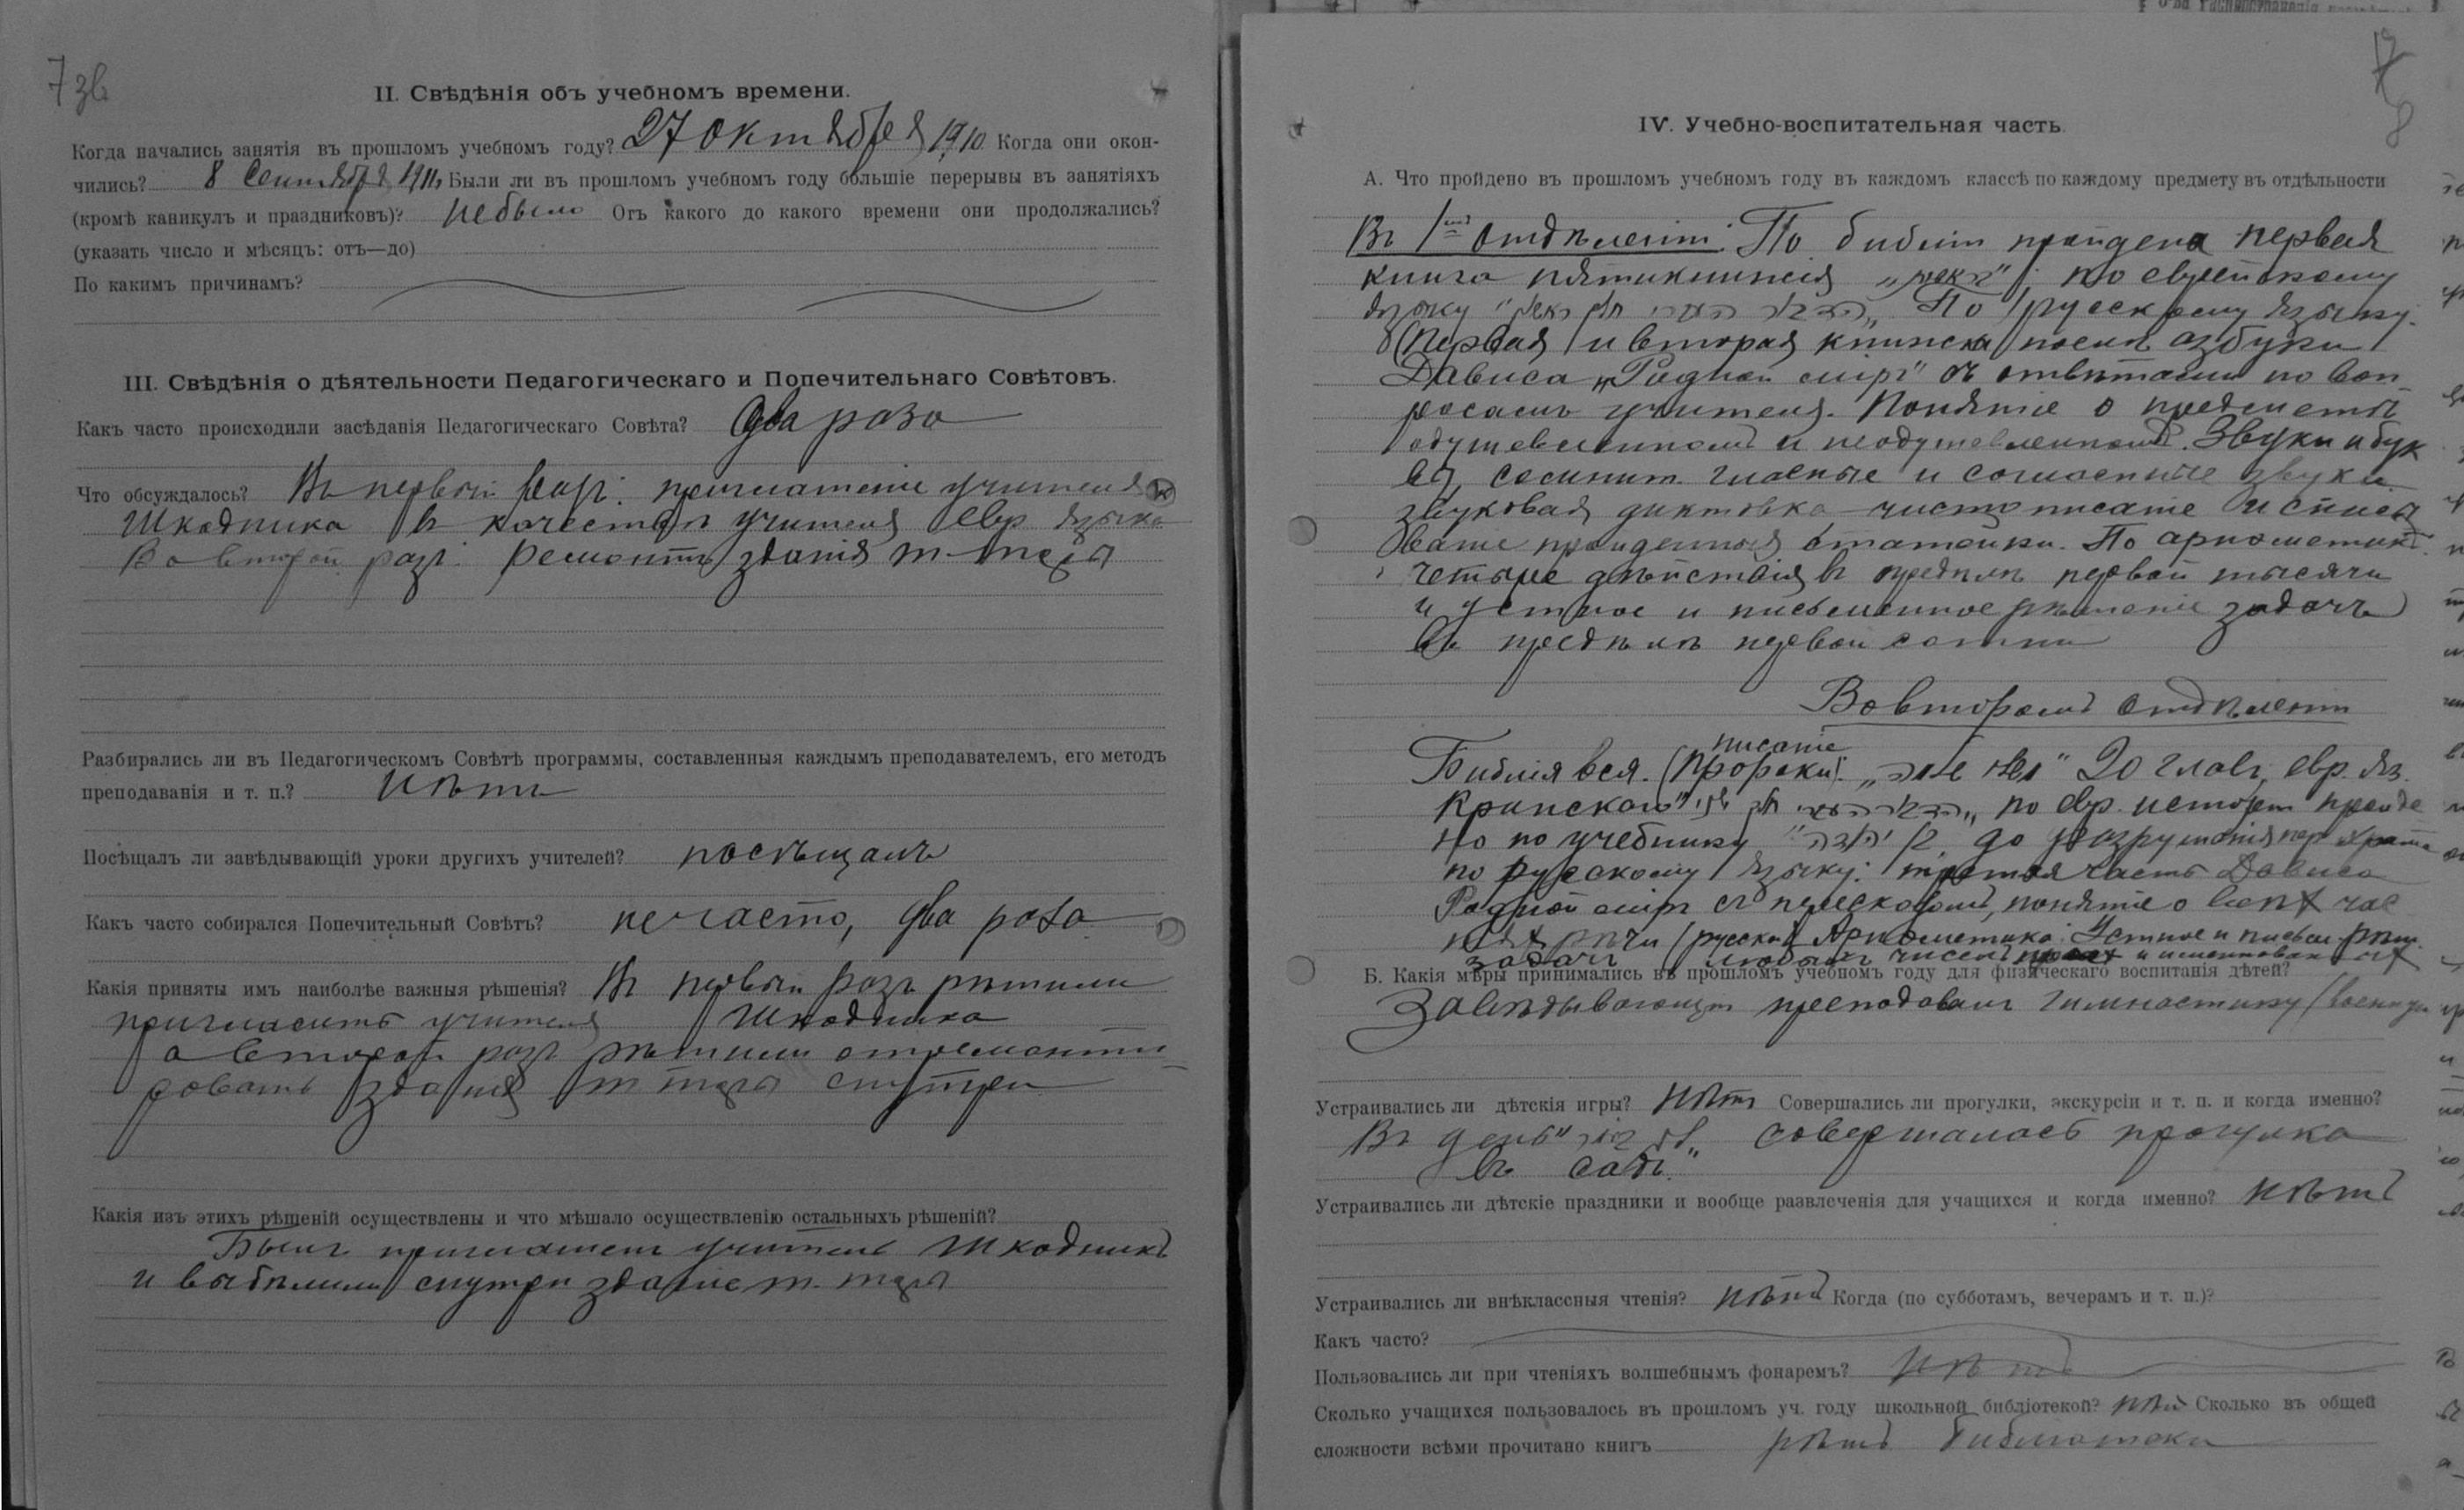 7 зв
II. Свѣдѣнія объ учебномъ времени.
Когда начались занятія въ прошломъ учебномъ году? 27 октября 1910 Когда они окон-
чились? 8 Сентября 1911 Были ли въ прошломъ учебномъ году большіе перерывы въ занятіяхъ
(кромѣ каникулъ и праздниковъ)? не было Отъ какого до какого времени они продолжались?
(указать число и мѣсяцъ: отъ—до)
По какимъ причинамъ?
III. Свѣдѣнія о дѣятельности Педагогическаго и Попечительнаго Совѣтовъ.
Какъ часто происходили засѣданія Педагогическаго Совѣта? два раза
Что обсуждалось? Въ первый разъ: приглашеніе учителя
Шкодника в качествѣ учителя евр языка
Во второй разъ: ремонтъ зданія т-торы
Разбирались ли въ Педагогическомъ Совѣтѣ программы, составленныя каждымъ преподавателемъ, его методъ
преподаванія и т. п.? Нѣтъ
Посѣщалъ ли завѣдывающій уроки другихъ учителей? посѣщалъ
Какъ часто собирался Попечительный Совѣтъ? не часто, два раза
Какія приняты имъ наиболѣе важныя рѣшенія? Въ первый разъ рѣшили
пригласить учителя Шкодника
а второй разъ рѣшили отремонти-
ровать зданія т торы снутри
Какія изъ этихъ рѣшеній осуществлены и что мѣшало осуществленію остальныхъ рѣшеній?
Былъ приглашенъ учитель Шкодникъ
и выбѣлили снутри зданіе т. торы
8
IV. Учебно-воспитательная часть
А. Что пройдено въ прошломъ учебномъ году въ каждомъ классѣ по каждому предмету въ отдѣльности
Въ 1мъ отдѣленіи: По библіи пройдена первая
книга пятикнижія; по еврейскому
языку הדבור העברי חלק ראשון По русскому языку:
Первая и вторая книжка послѣ азбуки
Дависа „Родной міръ" съ отвѣтами по воп
росамъ учителя. Понятіе о предметѣ
одушевленномъ и неодушевленномъ. Звуки и бук
вы, гласные и согласные звуки
звуковая диктовка чистописаніе и списы
ваніе пройденной статейки. По арифметикѣ
четыре дѣйствія въ предѣлѣ первой тысячи
и устное и письменное рѣшеніе задачъ
въ предѣлѣ первой сотни
Во второмъ отдѣленіи
писаніе
Библія вся. (Пророки) 20 главъ, евр. яз.
Кринскаго הדבור העברי חלק שני по евр. исторіи пройде
но по учебнику до разрушенія пер храма
по русскому языку: третья часть Дависа
Родной міръ съ пересказомъ, понятіе о всѣхъ час
тяхъ рѣчи (русской) Арифметика: Устное и письм рѣш.
задачъ чиселъ и именованныхъ
Б. Какія мѣры принимались въ прошломъ учебномъ году для физическаго воспитанія дѣтей?
Завѣдывающій преподавалъ гимнастику
Устраивались ли дѣтскія игры? Нѣтъ Совершались ли прогулки, экскурсіи и т. п. и когда именно?
Въ день совершалась прогулка
въ садъ.
Устраивались ли дѣтскіе праздники и вообще развлеченія для учащихся и когда именно? Нѣтъ
Устраивались ли внѣклассныя чтенія? нѣтъ Когда (по субботамъ, вечерамъ и т. п.)?
Какъ часто?
Пользовались ли при чтеніяхъ волшебнымъ фонаремъ? Нѣтъ
Сколько учащихся пользовалось въ прошломъ уч. году школьной библіотекой? нѣтъ Сколько въ общей
сложности всѣми прочитано книгъ нѣтъ библіотеки